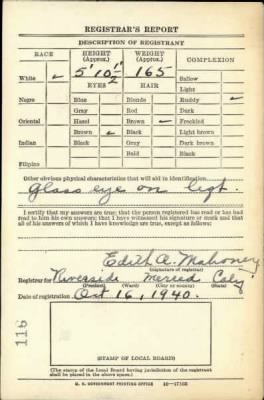 REGISTRAR'S REPORT
DESCRIPTION OF REGISTRANT
RACE HEIGHT (Approx.) WEIGHT (Approx.) COMPLEXION
White ✓ 5' 10 1/2" 165 Sallow
EYES HAIR Light
Negro Blue Blonde Ruddy ✓
Gray Red Dark
Oriental Hazel Brown ✓ Freckled
Brown ✓ Black Light brown
Indian Black Gray Dark brown
Bald Black
Filipino
Other obvious physical characteristics that will aid in identification
Glass eye on left.
I certify that my answers are true; that the person registered has read or has had
read to him his own answers; that I have witnessed his signature or mark and that
all of his answers of which I have knowledge are true, except as follows:
Edith A. Mahoney
(Signature of registrar)
Registrar for Riverside Merced Calif
(Precinct) (Ward) (City or county) (State)
Date of registration Oct 16, 1940.
116
(STAMP OF LOCAL BOARD)
(The stamp of the Local Board having jurisdiction of the registrant
shall be placed in the above space.)
U. S. GOVERNMENT PRINTING OFFICE 16-17105